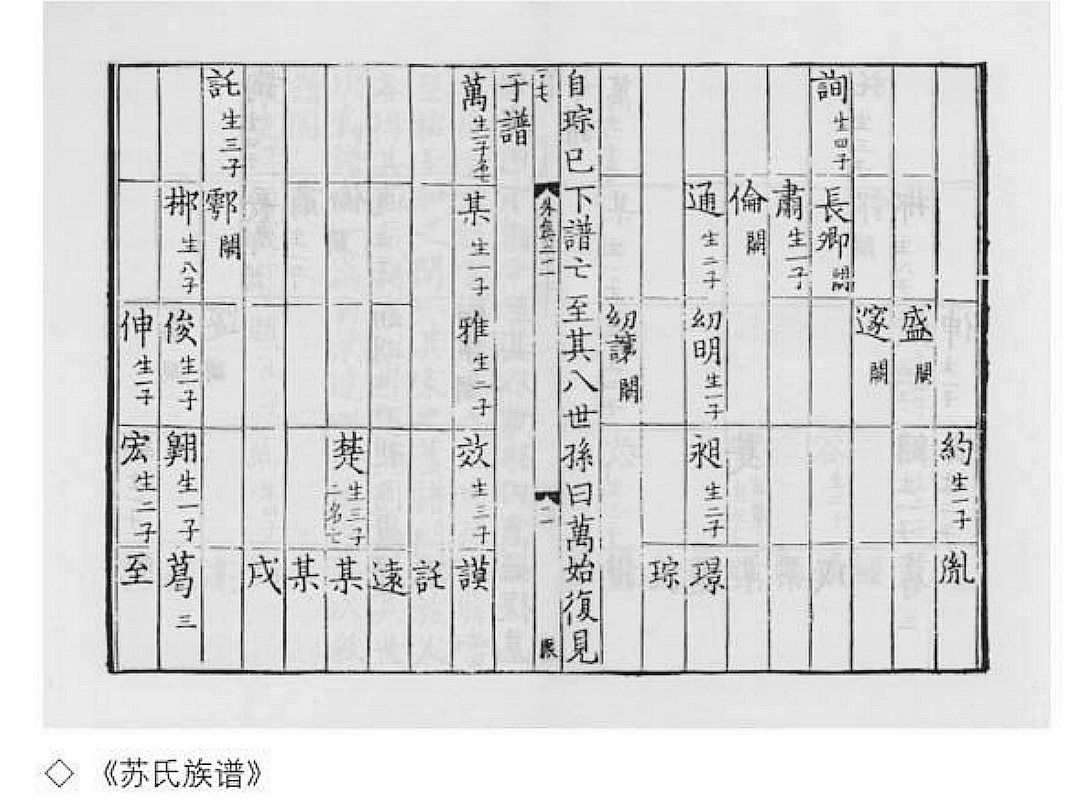 約 生一子
胤
盛 闕
邃 闕
詢 生四子
長卿 闕
肅 生一子
倫 闕
通 生二子
幼明 生一子
昶 生二子
璟
琮
幼謙 闕
自琮已下譜亡至其八世孫曰萬始復見
于譜
萬 生一子名亡
某 生一子
雅 生二子
效 生三子
讃
託
遠
楚 生三子
二名亡
某
某
戌
託 生三子
鄠 闕
郴 生八子
俊 生一子
翺 生一子
葛 三
伸 生一子
宏 生二子
至
◇ 《苏氏族谱》